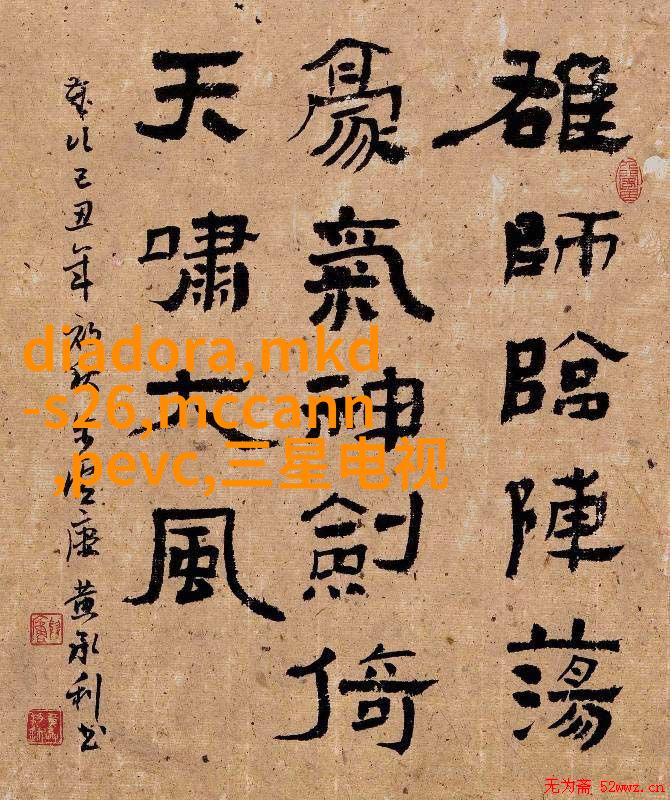 雄師臨陣蕩
豪氣神劍倚
天嘯大風
歲次己丑年初秋康黄承利书
diadora,mkd
-s26,mccann
,pevc,三星电视
无为斋 52wwz.cn